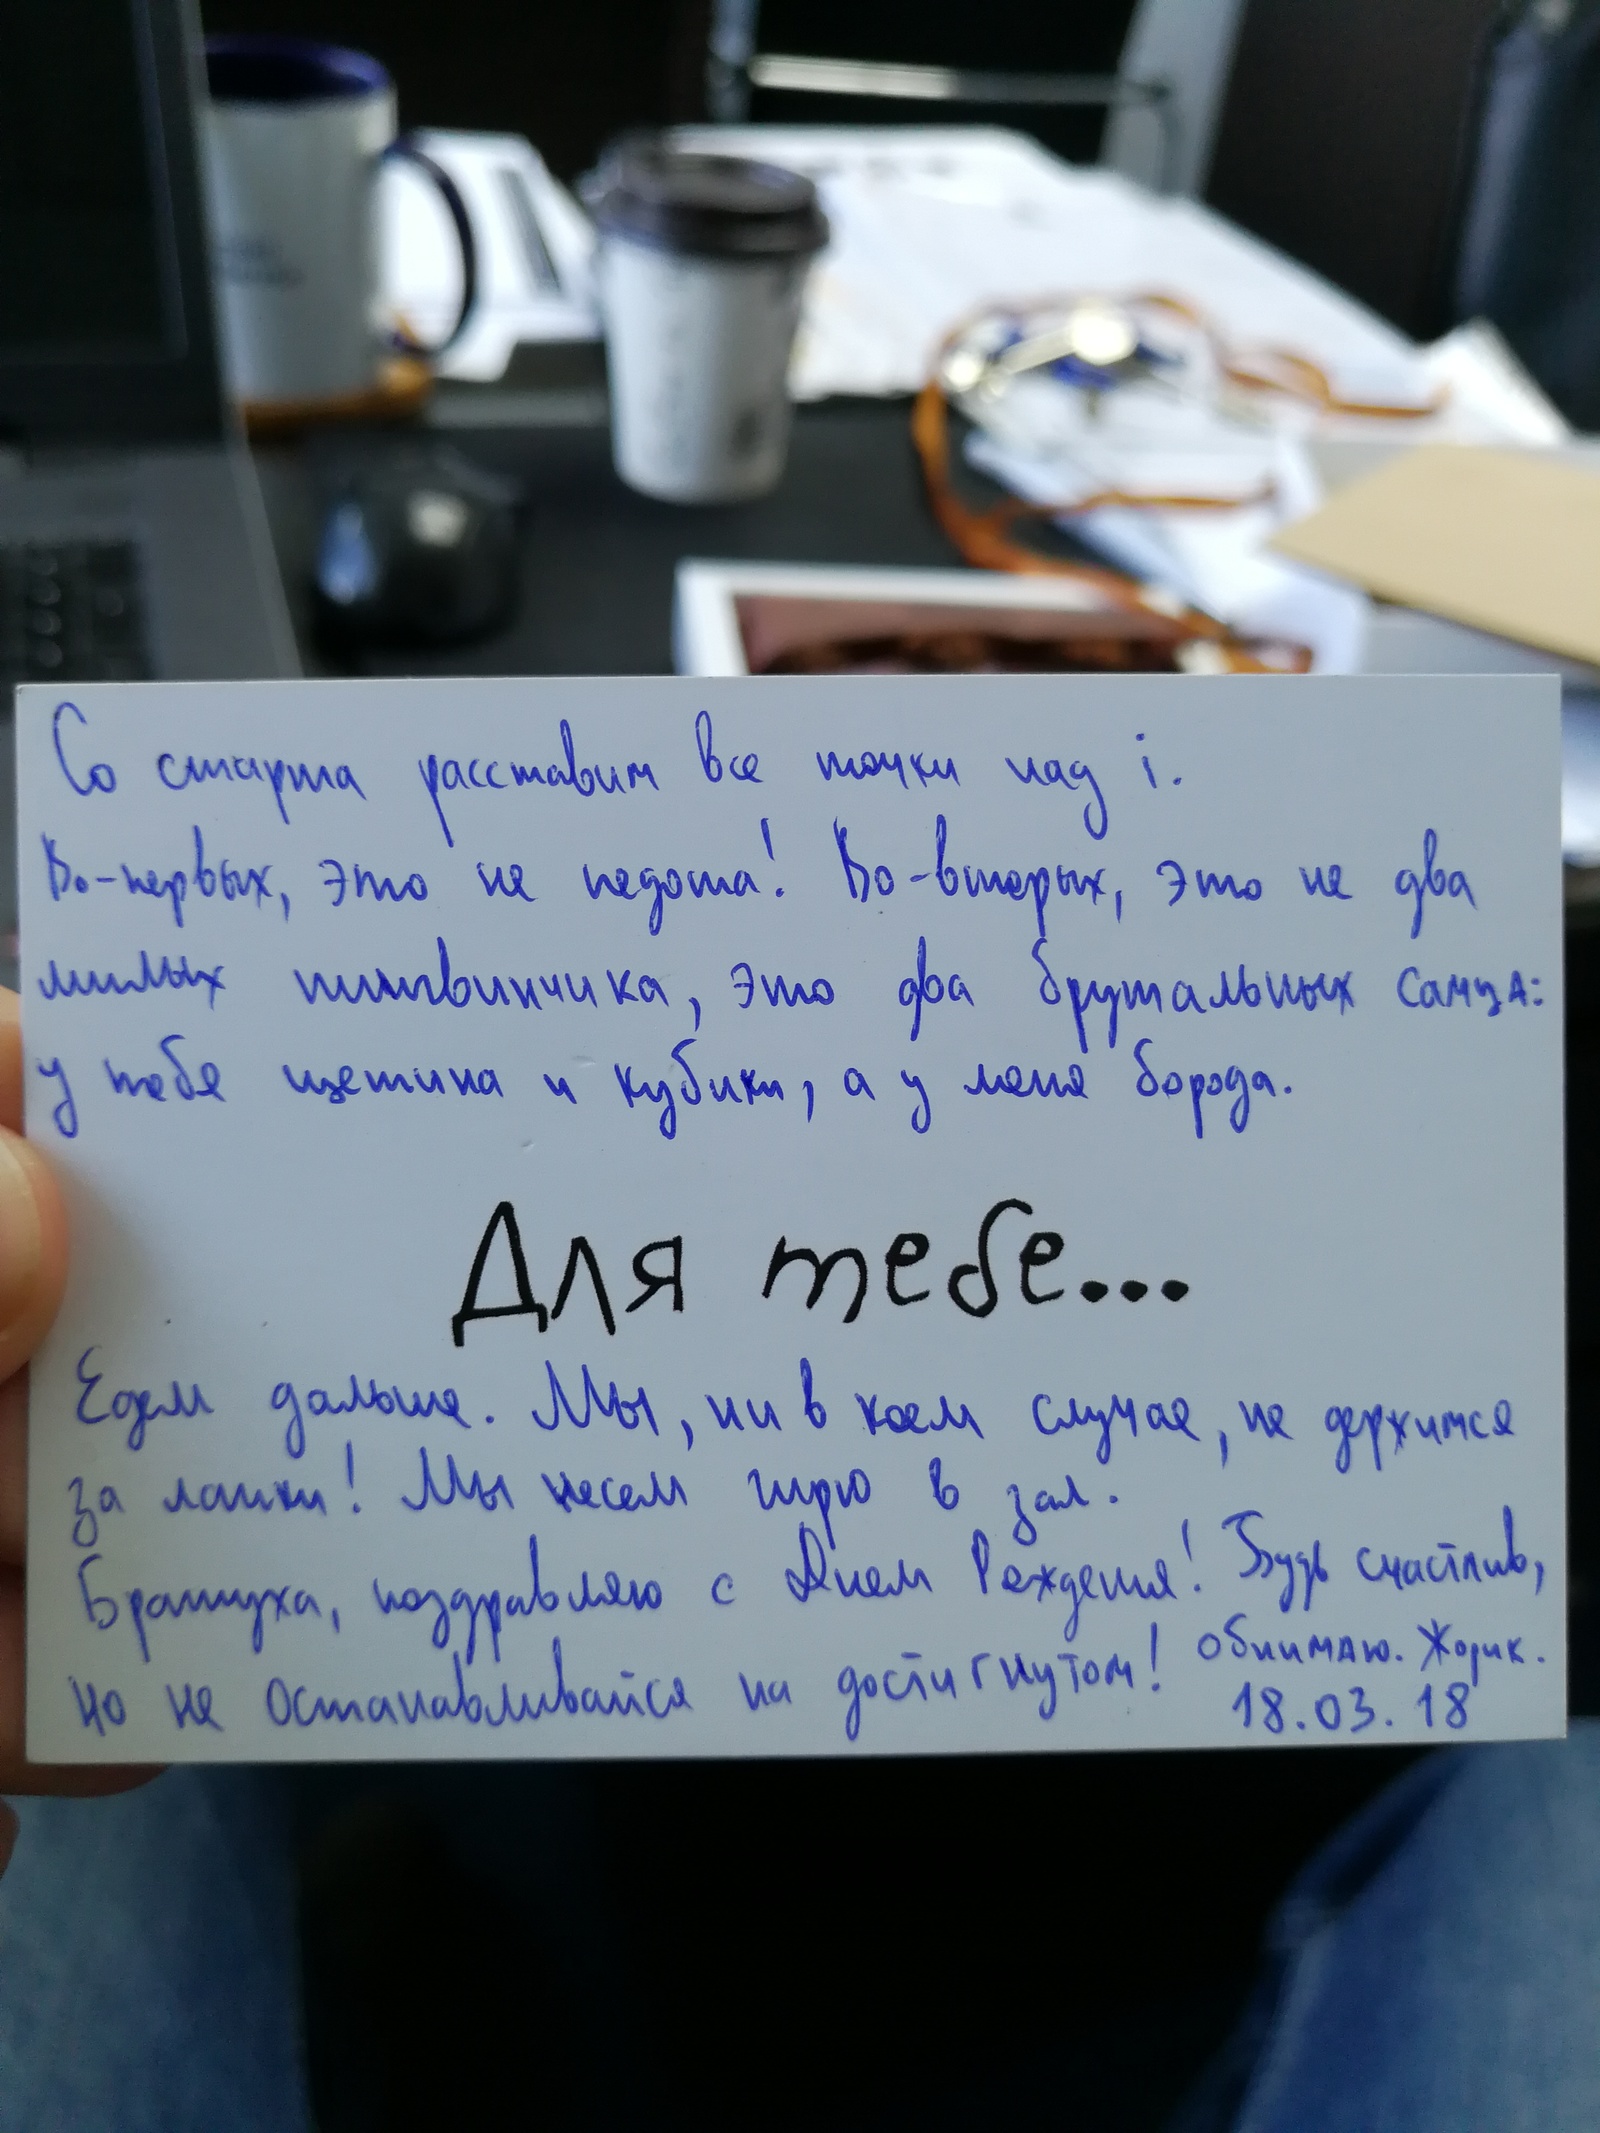 Со старта расставим все точки над i.
Во-первых, это не педота! Во-вторых, это не два
милых пингвинчика, это два брутальных самца:
у тебя щетина и кубики, а у меня борода.
Для тебе...
Едем дальше. Мы, ни в коем случае, не держимся
за лапки! Мы несем гирю в зал.
Братуха, поздравляю с Днем Рождения! Будь счастлив,
но не останавливайся на достигнутом! Обнимаю. Жорик.
18.03.18